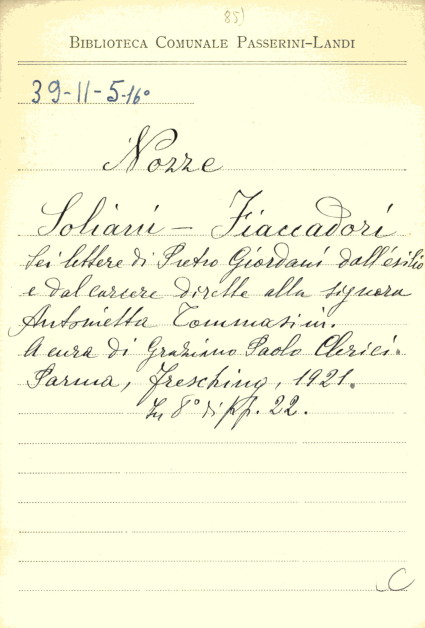 85)
BIBLIOTECA COMUNALE PASSERINI-LANDI
39-11-5-16°
Nozze
Soliani - Fiaccadori
Sei lettere di Pietro Giordani dall'esilio
e dal carcere dirette alla signora
Antonietta Tommasini.
A cura di Graziano Paolo Clerici.
Parma, Fresching, 1921.
In 8° di pp. 22.
C